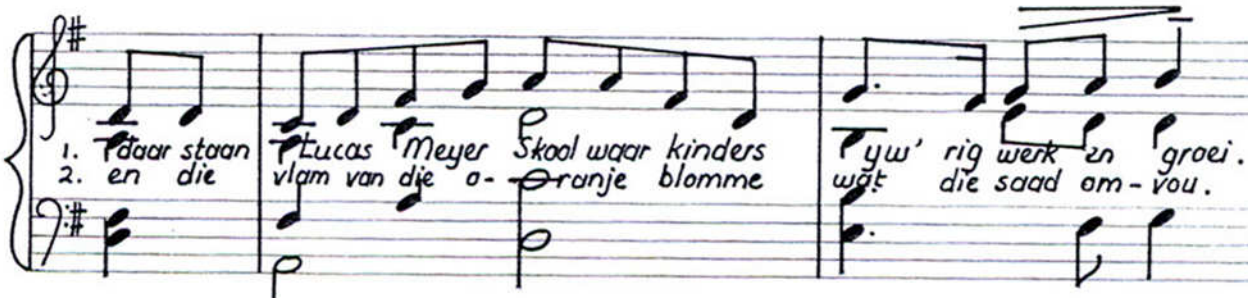 1. daar staan Lucas Meyer Skool waar kinders yw' rig werk en groei.
2. en die vlam van die o- ranje blomme wat die saad om-vou.